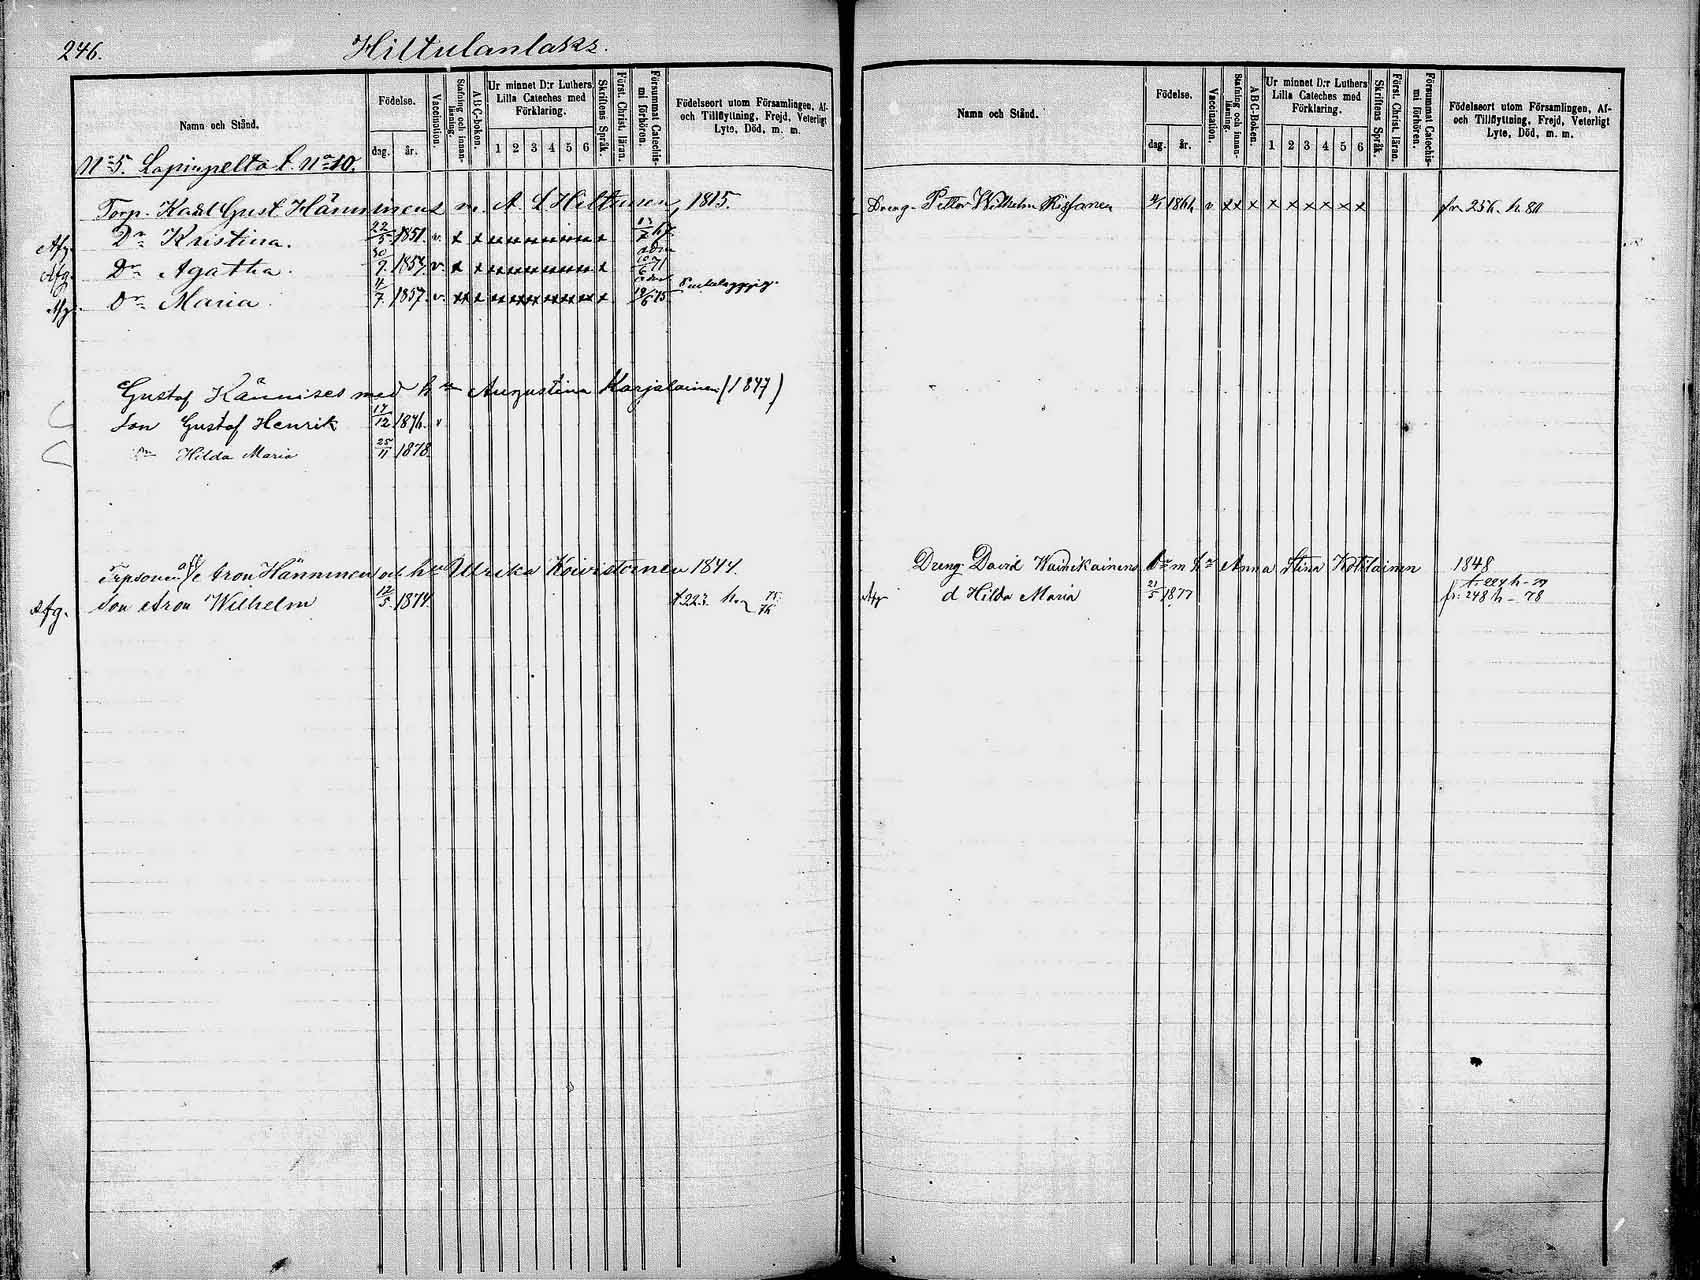 246.
Hiltulanlaks.
Namn och Stånd.
Födelse.
dag. år.
Vaccination.
Stafning och innan-läsning.
A B C-boken.
Ur minnet D:r Luthers Lilla Cateches med Förklaring.
1 2 3 4 5 6
Skriftens Språk.
Först. Christ. läran.
Försummat Catechis-mi förhören.
Födelseort utom Församlingen, Af-
och Tillflyttning, Frejd, Veterligt
Lyte, Död, m. m.
No 5. Lapinpelto l. No 10.
Torp. Karl Gust. Hänninens m. A. L Hiltunen, 1815.
Afg. Dr Kristina. 22/5 1851. v. x x
Afg. Dr Agatha. 30/9. 1853. v. x x
Afg. Dr Maria. 11/7 1857. v. xx x
Gustof Hännises med hu Augustina Karjalainen (1847)
Son Gustof Henrik 17/12 1876. v
Hilda Maria 25/11 1878.
Aron Hänninen och hu Ulrika Koivistoinen 1844.
Afg. Son Aron Wilhelm 12/5 1874. t. 223.
Namn och Stånd.
Födelse.
dag. år.
Vaccination.
Stafning och innan-läsning.
A B C-Boken.
Ur minnet D:r Luthers
Lilla Cateches med
Förklaring.
1 2 3 4 5 6
Skriftens Språk.
Först. Christ. läran.
Försummat Catechis-mi förhören.
Födelseort utom Församlingen, Af-
och Tillflyttning, Frejd, Veterligt
Lyte, Död, m. m.
Dreng. Petter Wilhelm Rissanen 1864 v. xx x x x x x x x fr. 256. h. 80
Dreng David Wainikainens m hu Anna Stina Kotilainen 1848
Afg d Hilda Maria 21/5 1877 fr: 248 h - 78